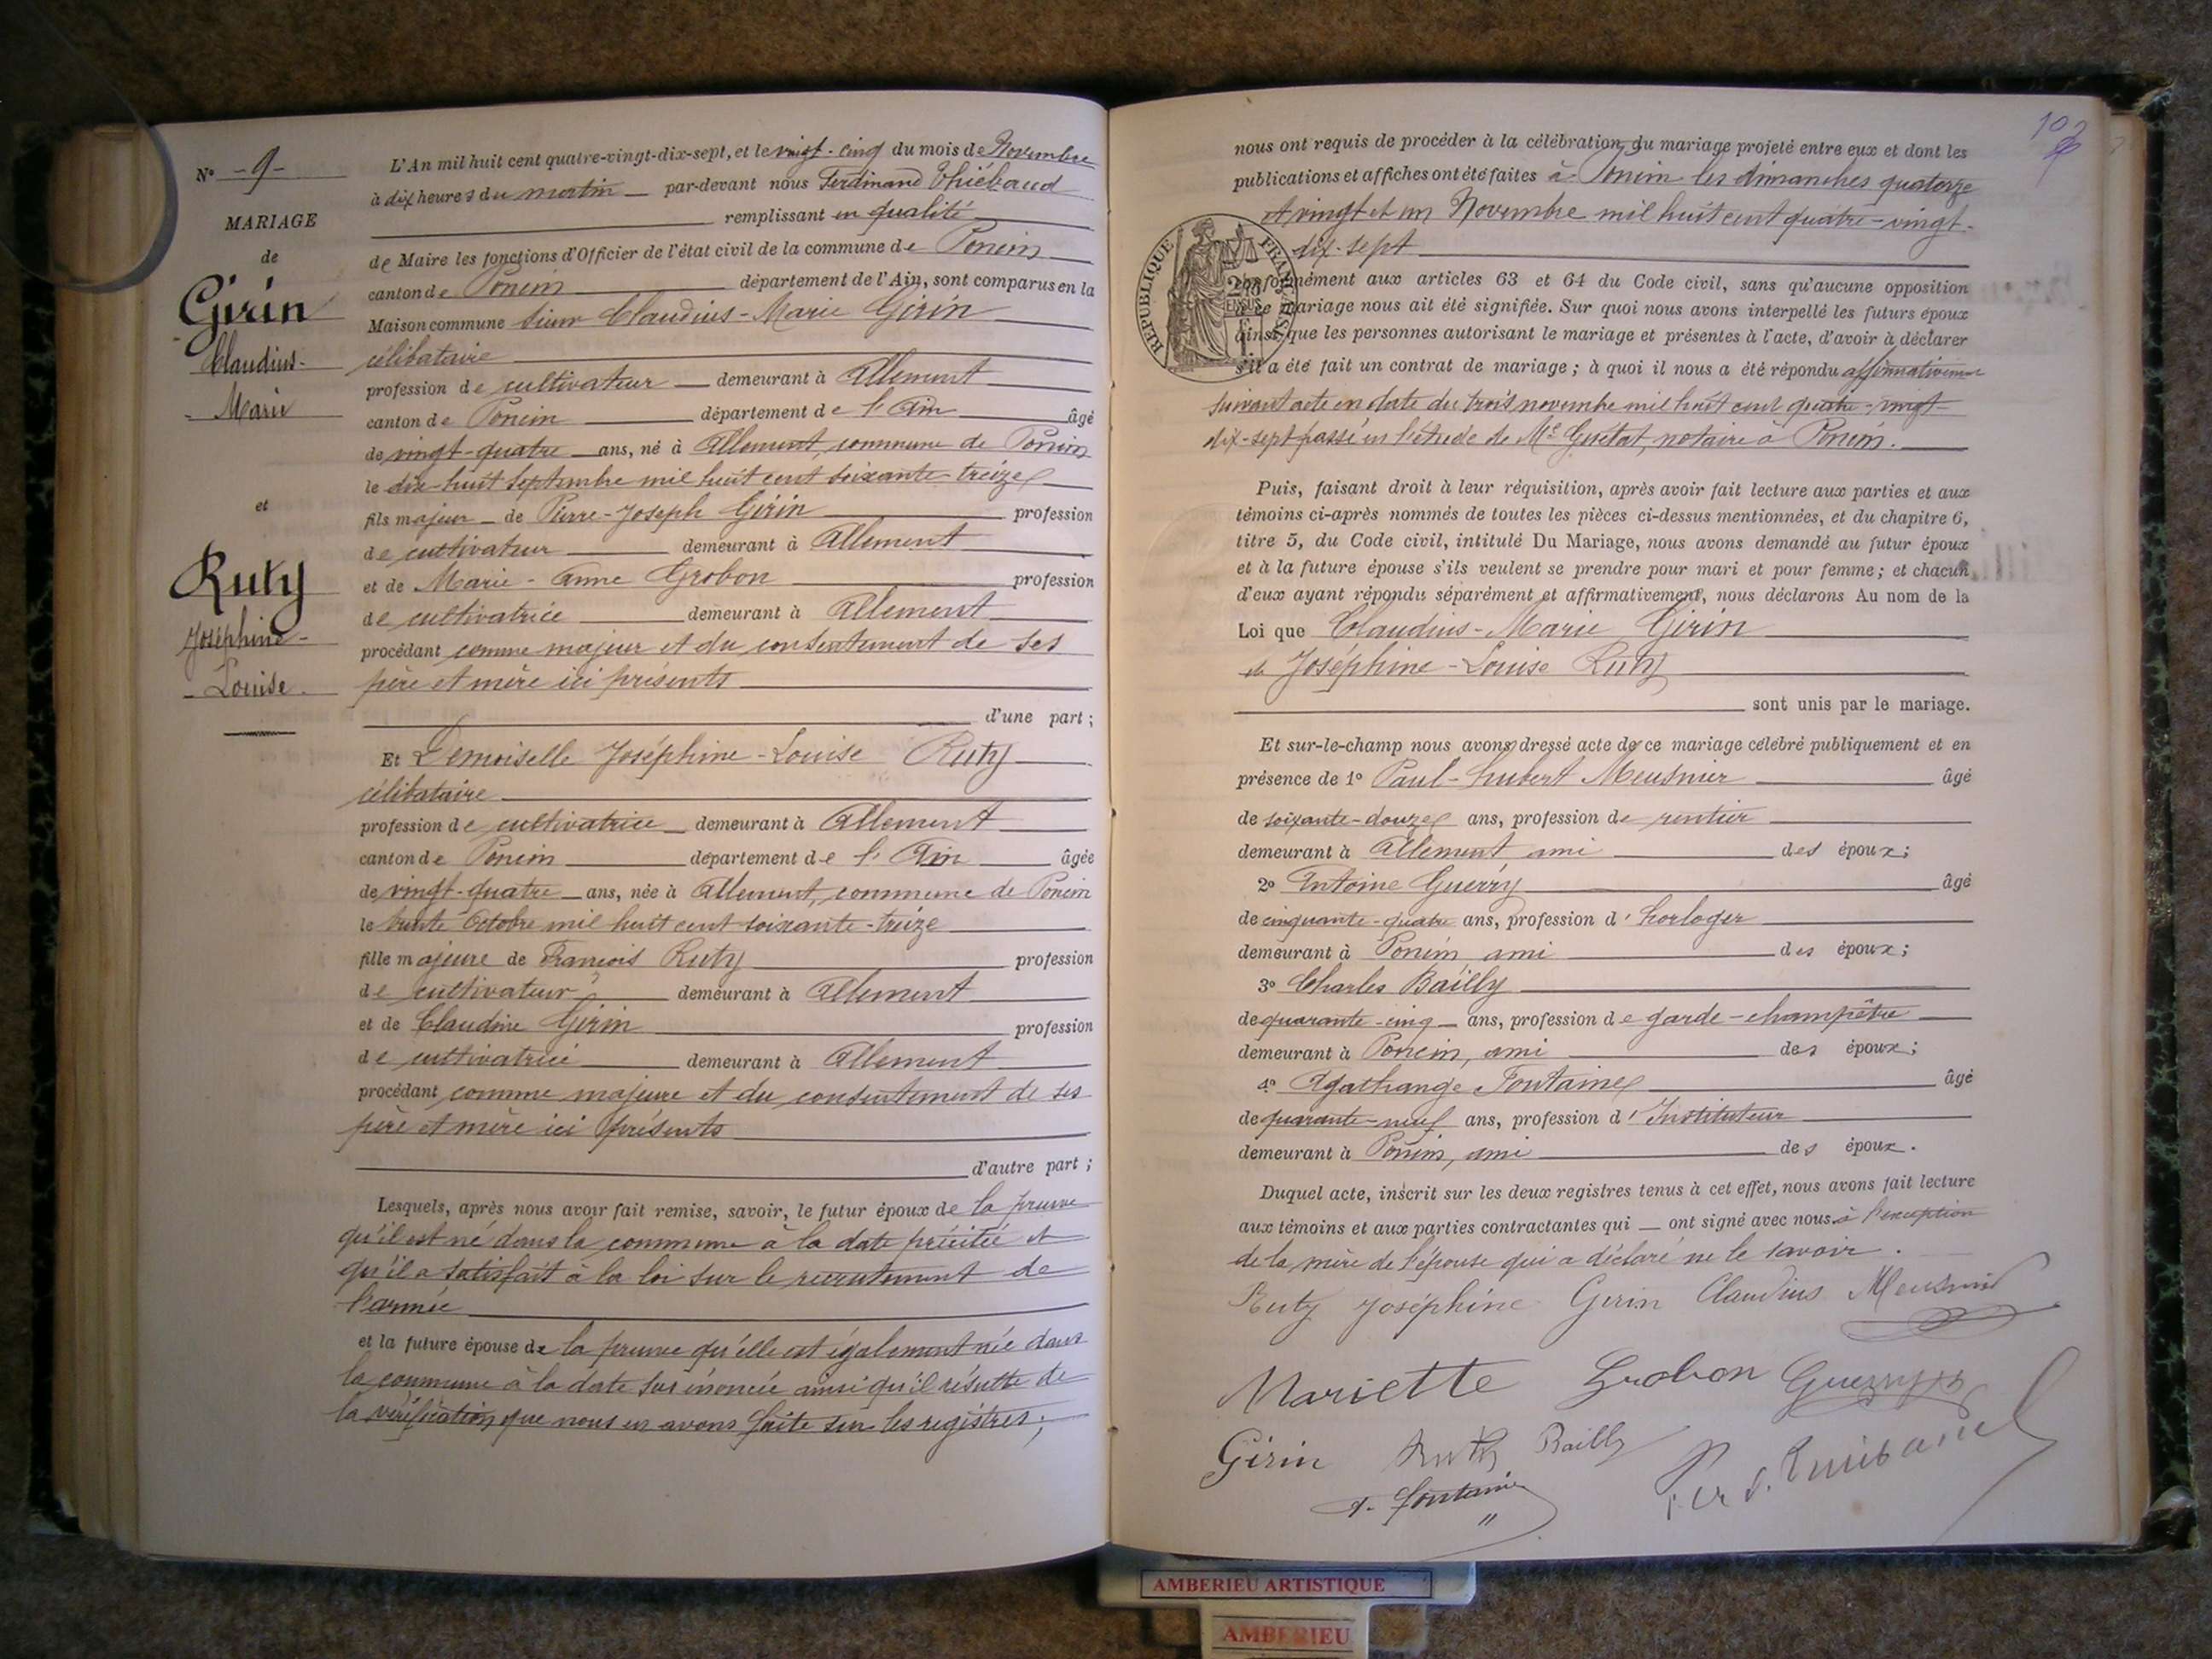 N° - 9 -
MARIAGE
de
Girin
Claudius-
- Marie
et
Ruty
Joséphine-
- Louise
L'An mil huit cent quatre-vingt-dix-sept, et le vingt-cinq du mois de Novembre
à dix heures du matin par-devant nous Ferdinand Thiébaud
remplissant en qualité
de Maire les fonctions d'Officier de l'état civil de la commune de Poncin
canton de Poncin département de l'Ain, sont comparus en la
Maison commune Sieur Claudius-Marie Girin
célibataire
profession de cultivateur demeurant à Allement
canton de Poncin département de l'Ain âgé
de vingt-quatre ans, né à Allement, commune de Poncin
le dix-huit Septembre mil huit cent soixante-treize
fils majeur de Pierre-Joseph Girin profession
de cultivateur demeurant à Allement
et de Marie-Anne Grobon profession
de cultivatrice demeurant à Allement
procédant comme majeur et du consentement de ses
père et mère ici présents
d'une part ;
Et Demoiselle Joséphine-Louise Ruty
célibataire
profession de cultivatrice demeurant à Allement
canton de Poncin département de l'Ain âgée
de vingt-quatre ans, née à Allement, commune de Poncin
le trente Octobre mil huit cent soixante-treize
fille majeure de François Ruty profession
de cultivateur demeurant à Allement
et de Claudine Girin profession
de cultivatrice demeurant à Allement
procédant comme majeure et du consentement de ses
père et mère ici présents
d'autre part ;
Lesquels, après nous avoir fait remise, savoir, le futur époux de la preuve
qu'il est né dans la commune à la date précitée et
qu'il a satisfait à la loi sur le recrutement de
l'armée
et la future épouse de la preuve qu'elle est également née dans
la commune à la date sus énoncée ainsi qu'il résulte de
la vérification que nous en avons faite sur les registres ;
102
nous ont requis de procéder à la célébration du mariage projeté entre eux et dont les
publications et affiches ont été faites à Poncin les dimanches quatorze
et vingt et un Novembre mil huit cent quatre-vingt-
dix-sept
RÉPUBLIQUE FRANÇAISE
conformément aux articles 63 et 64 du Code civil, sans qu'aucune opposition
à ce mariage nous ait été signifiée. Sur quoi nous avons interpellé les futurs époux
ainsi que les personnes autorisant le mariage et présentes à l'acte, d'avoir à déclarer
s'il a été fait un contrat de mariage ; à quoi il nous a été répondu affirmativement
suivant acte en date du trois novembre mil huit cent quatre-vingt-
dix-sept passé en l'étude de Me Guetat, notaire à Poncin.
Puis, faisant droit à leur réquisition, après avoir fait lecture aux parties et aux
témoins ci-après nommés de toutes les pièces ci-dessus mentionnées, et du chapitre 6,
titre 5, du Code civil, intitulé Du Mariage, nous avons demandé au futur époux
et à la future épouse s'ils veulent se prendre pour mari et pour femme ; et chacun
d'eux ayant répondu séparément et affirmativement, nous déclarons Au nom de la
Loi que Claudius-Marie Girin
et Joséphine-Louise Ruty
sont unis par le mariage.
Et sur-le-champ nous avons dressé acte de ce mariage célébré publiquement et en
présence de 1° Paul-Hubert Meusnier âgé
de soixante-douze ans, profession de rentier
demeurant à Allement ami des époux ;
2° Antoine Guerry âgé
de cinquante-quatre ans, profession d'horloger
demeurant à Poncin, ami des époux ;
3° Charles Bailly
de quarante-cinq ans, profession de garde-champêtre
demeurant à Poncin, ami des époux ;
4° Agathange Fontaine âgé
de quarante-neuf ans, profession d'Instituteur
demeurant à Poncin, ami des époux.
Duquel acte, inscrit sur les deux registres tenus à cet effet, nous avons fait lecture
aux témoins et aux parties contractantes qui ont signé avec nous à l'exception
de la mère de l'épouse qui a déclaré ne le savoir.
Ruty Joséphine Girin Claudius Meusnier
Mariette Grobon Guerry
Girin Ruty Bailly
A. Fontaine
AMBERIEU ARTISTIQUE
AMBERIEU